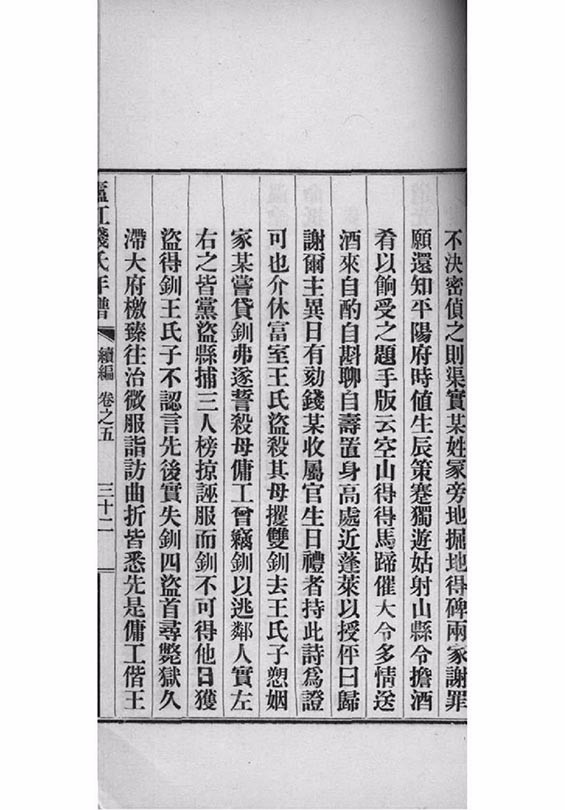 不決密偵之則渠實某姓冢旁地掘地得碑兩家謝罪
願還知平陽府時值生辰策蹇獨遊姑射山縣令擔酒
肴以餉受之題手版云空山得得馬蹄催大令多情送
酒來自酌自斟聊自壽置身高處近蓬萊以授伻曰歸
謝爾主異日有劾錢某收屬官生日禮者持此詩為證
可也介休富室王氏盜殺其母攫雙釧去王氏子愬姻
家某嘗貸釧弗遂誓殺母傭工曾竊釧以逃鄰人實左
右之皆黨盜縣捕三人榜掠誣服而釧不可得他日獲
盜得釧王氏子不認言先後實失釧四盜首尋斃獄久
滯大府檄臻往治微服詣訪曲折皆悉先是傭工偕王
廬江錢氏年譜 續編 卷之五 三十二